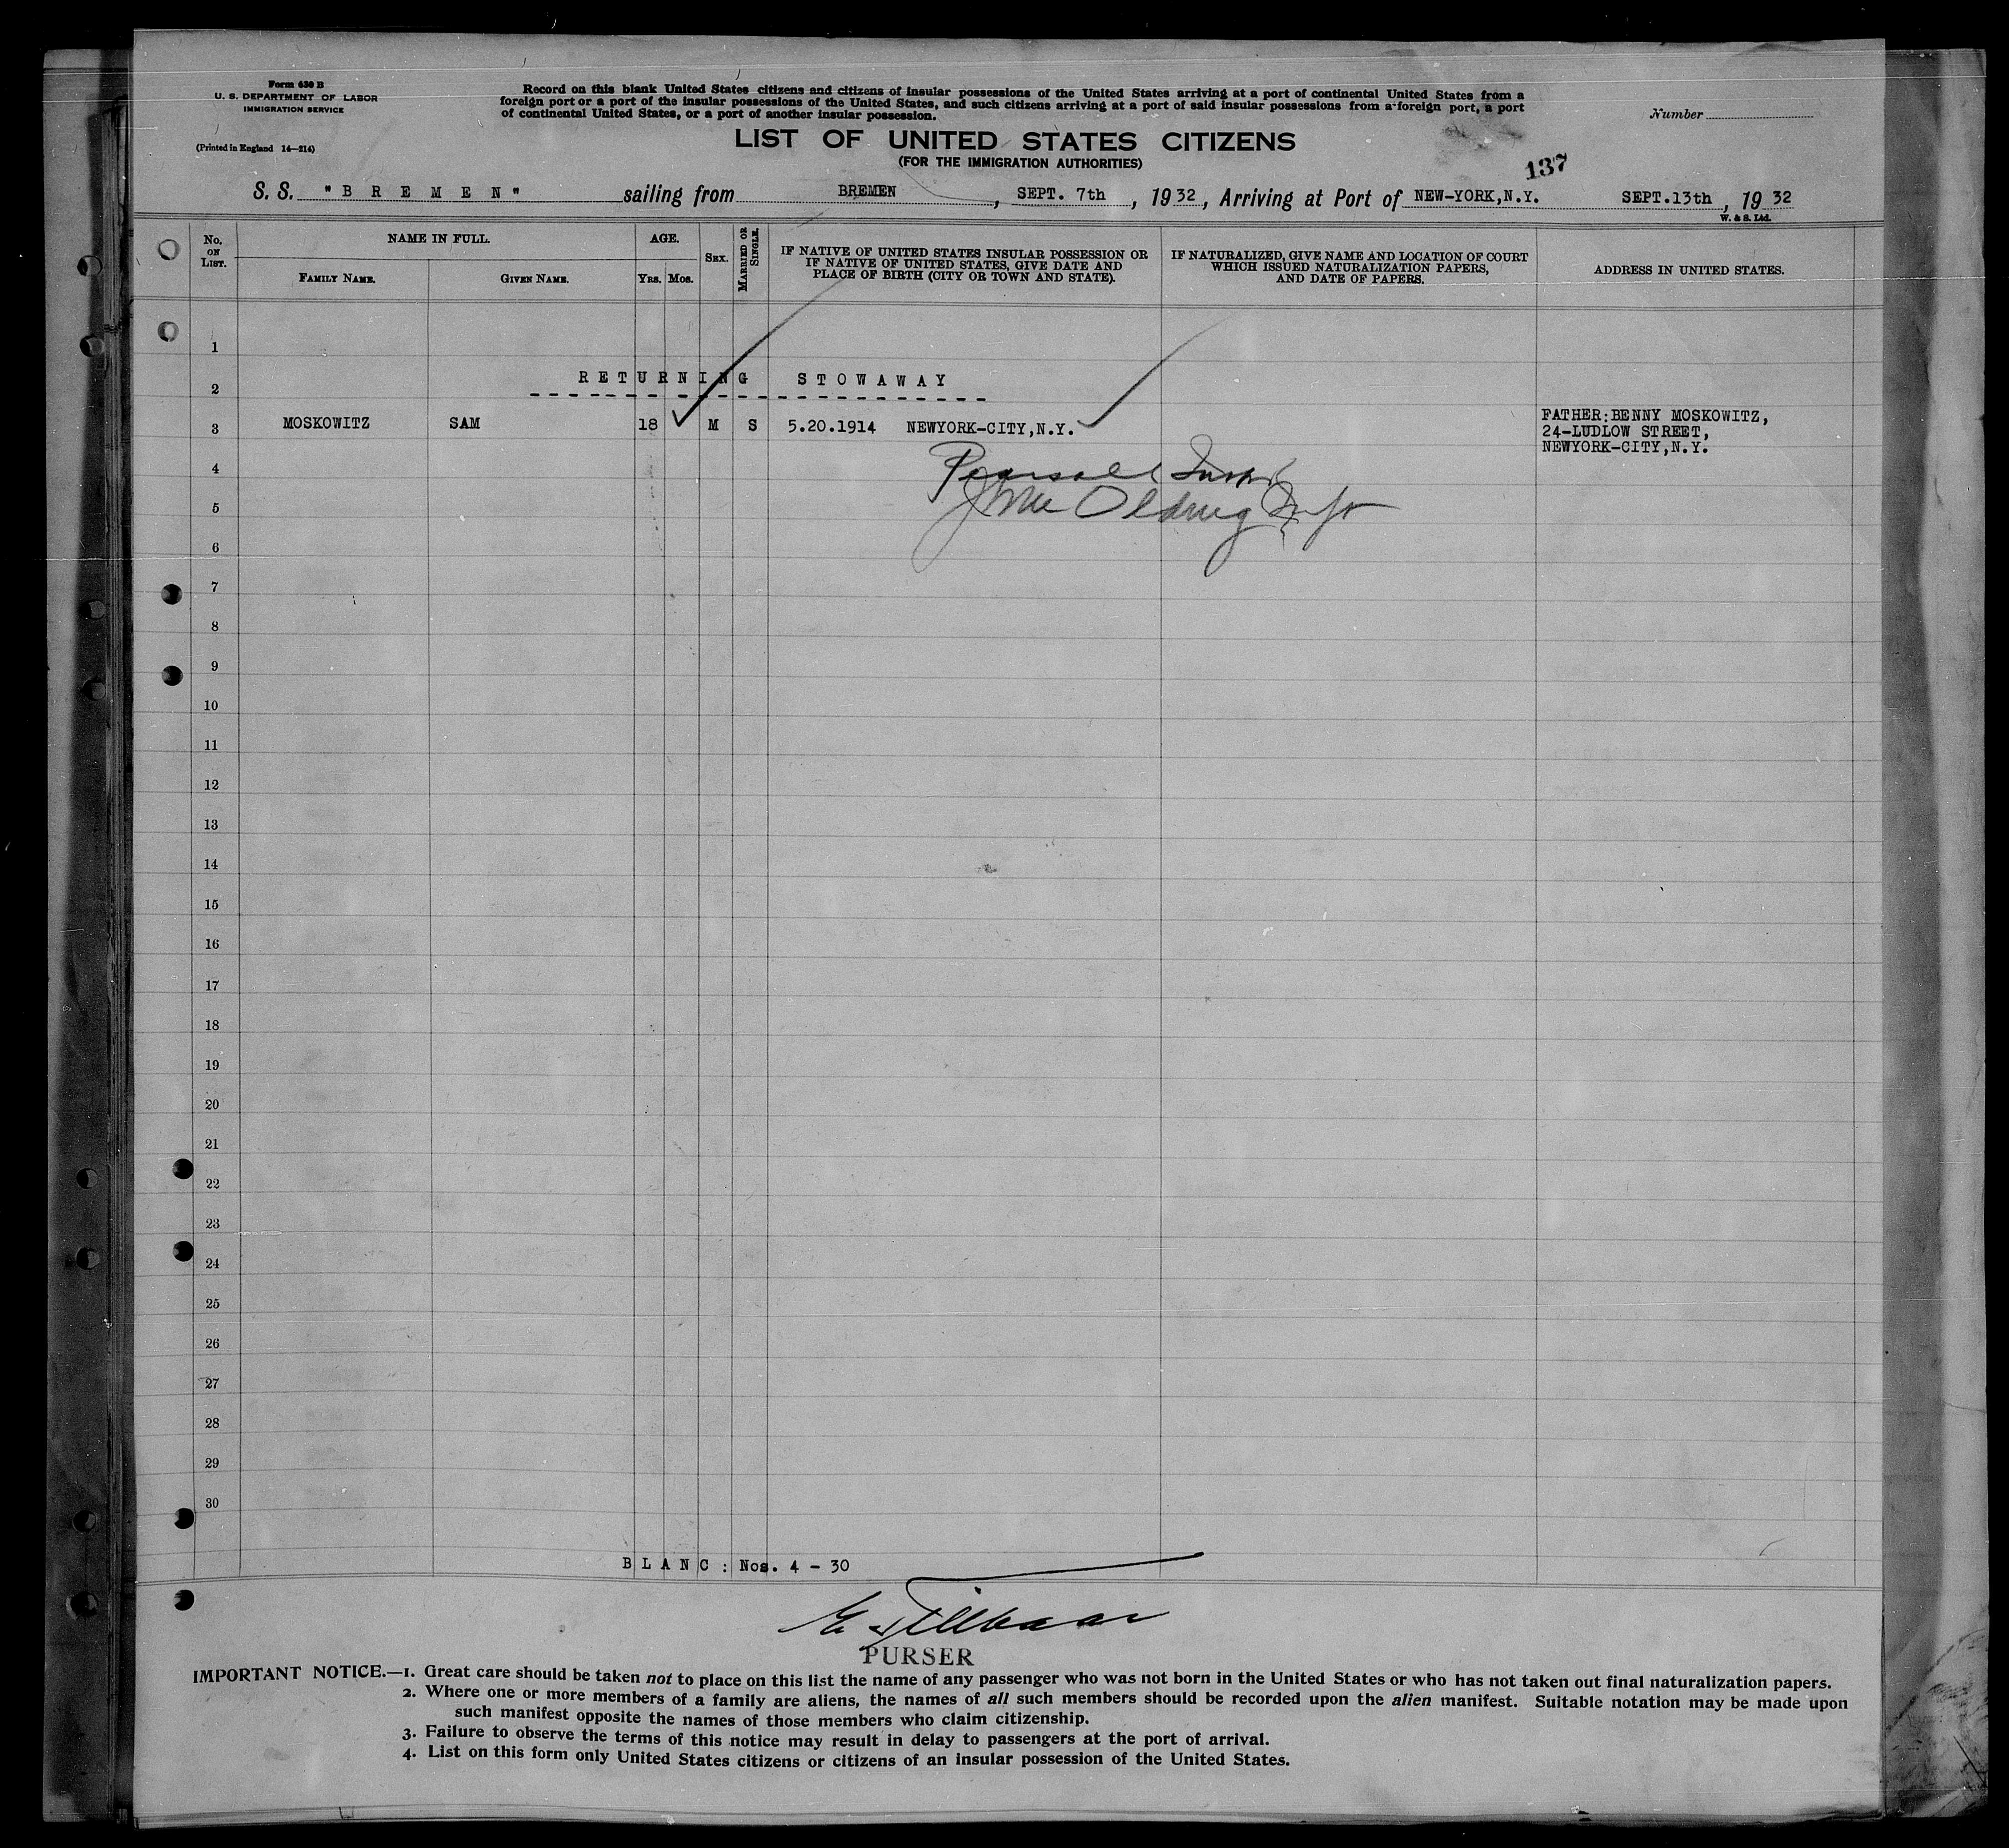 Form 630 B
U. S. DEPARTMENT OF LABOR
IMMIGRATION SERVICE
(Printed in England 14—214)
Record on this blank United States citizens and citizens of insular possessions of the United States arriving at a port of continental United States from a
foreign port or a port of the insular possessions of the United States, and such citizens arriving at a port of said insular possessions from a foreign port, a port
of continental United States, or a port of another insular possession.
Number
LIST OF UNITED STATES CITIZENS
(FOR THE IMMIGRATION AUTHORITIES)
137
S. S. "BREMEN" sailing from BREMEN, SEPT. 7th, 1932, Arriving at Port of NEW-YORK,N.Y. SEPT.13th, 1932
W. & S. Ltd.
No. ON LIST.
NAME IN FULL.
FAMILY NAME. GIVEN NAME.
AGE.
YRS. MOS.
SEX.
MARRIED OR SINGLE.
IF NATIVE OF UNITED STATES INSULAR POSSESSION OR
IF NATIVE OF UNITED STATES, GIVE DATE AND
PLACE OF BIRTH (CITY OR TOWN AND STATE).
IF NATURALIZED, GIVE NAME AND LOCATION OF COURT
WHICH ISSUED NATURALIZATION PAPERS,
AND DATE OF PAPERS.
ADDRESS IN UNITED STATES.
1
2 RETURNING STOWAWAY
3 MOSKOWITZ SAM 18 M S 5.20.1914 NEWYORK-CITY,N.Y. FATHER:BENNY MOSKOWITZ,
24-LUDLOW STREET,
NEWYORK-CITY,N.Y.
4
5
6
7
8
9
10
11
12
13
14
15
16
17
18
19
20
21
22
23
24
25
26
27
28
29
30
BLANC: Nos. 4 - 30
PURSER
IMPORTANT NOTICE.—1. Great care should be taken not to place on this list the name of any passenger who was not born in the United States or who has not taken out final naturalization papers.
2. Where one or more members of a family are aliens, the names of all such members should be recorded upon the alien manifest. Suitable notation may be made upon
such manifest opposite the names of those members who claim citizenship.
3. Failure to observe the terms of this notice may result in delay to passengers at the port of arrival.
4. List on this form only United States citizens or citizens of an insular possession of the United States.